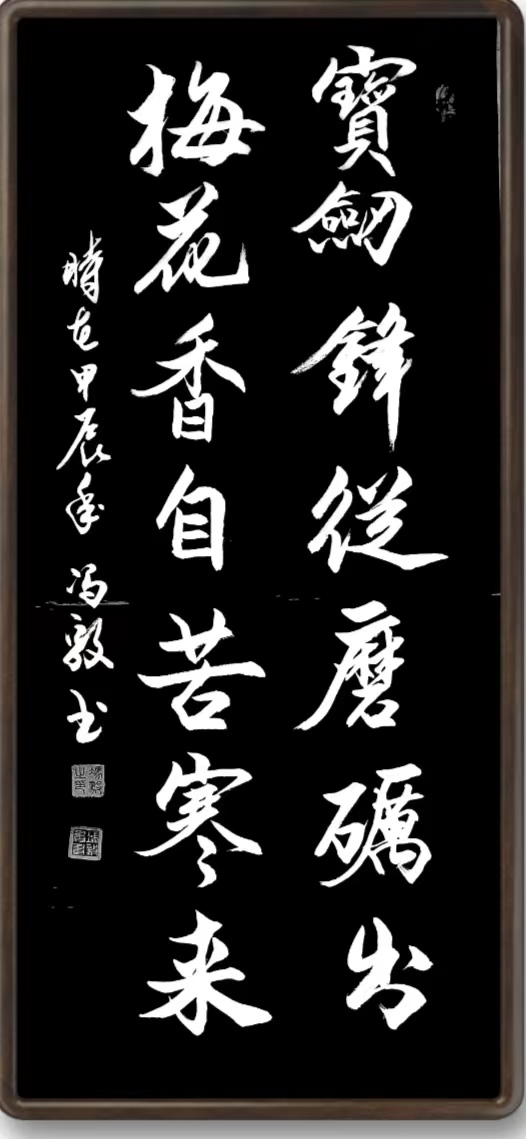 寶劒鋒從磨礪出
梅花香自苦寒来
時在甲辰年冯毅书